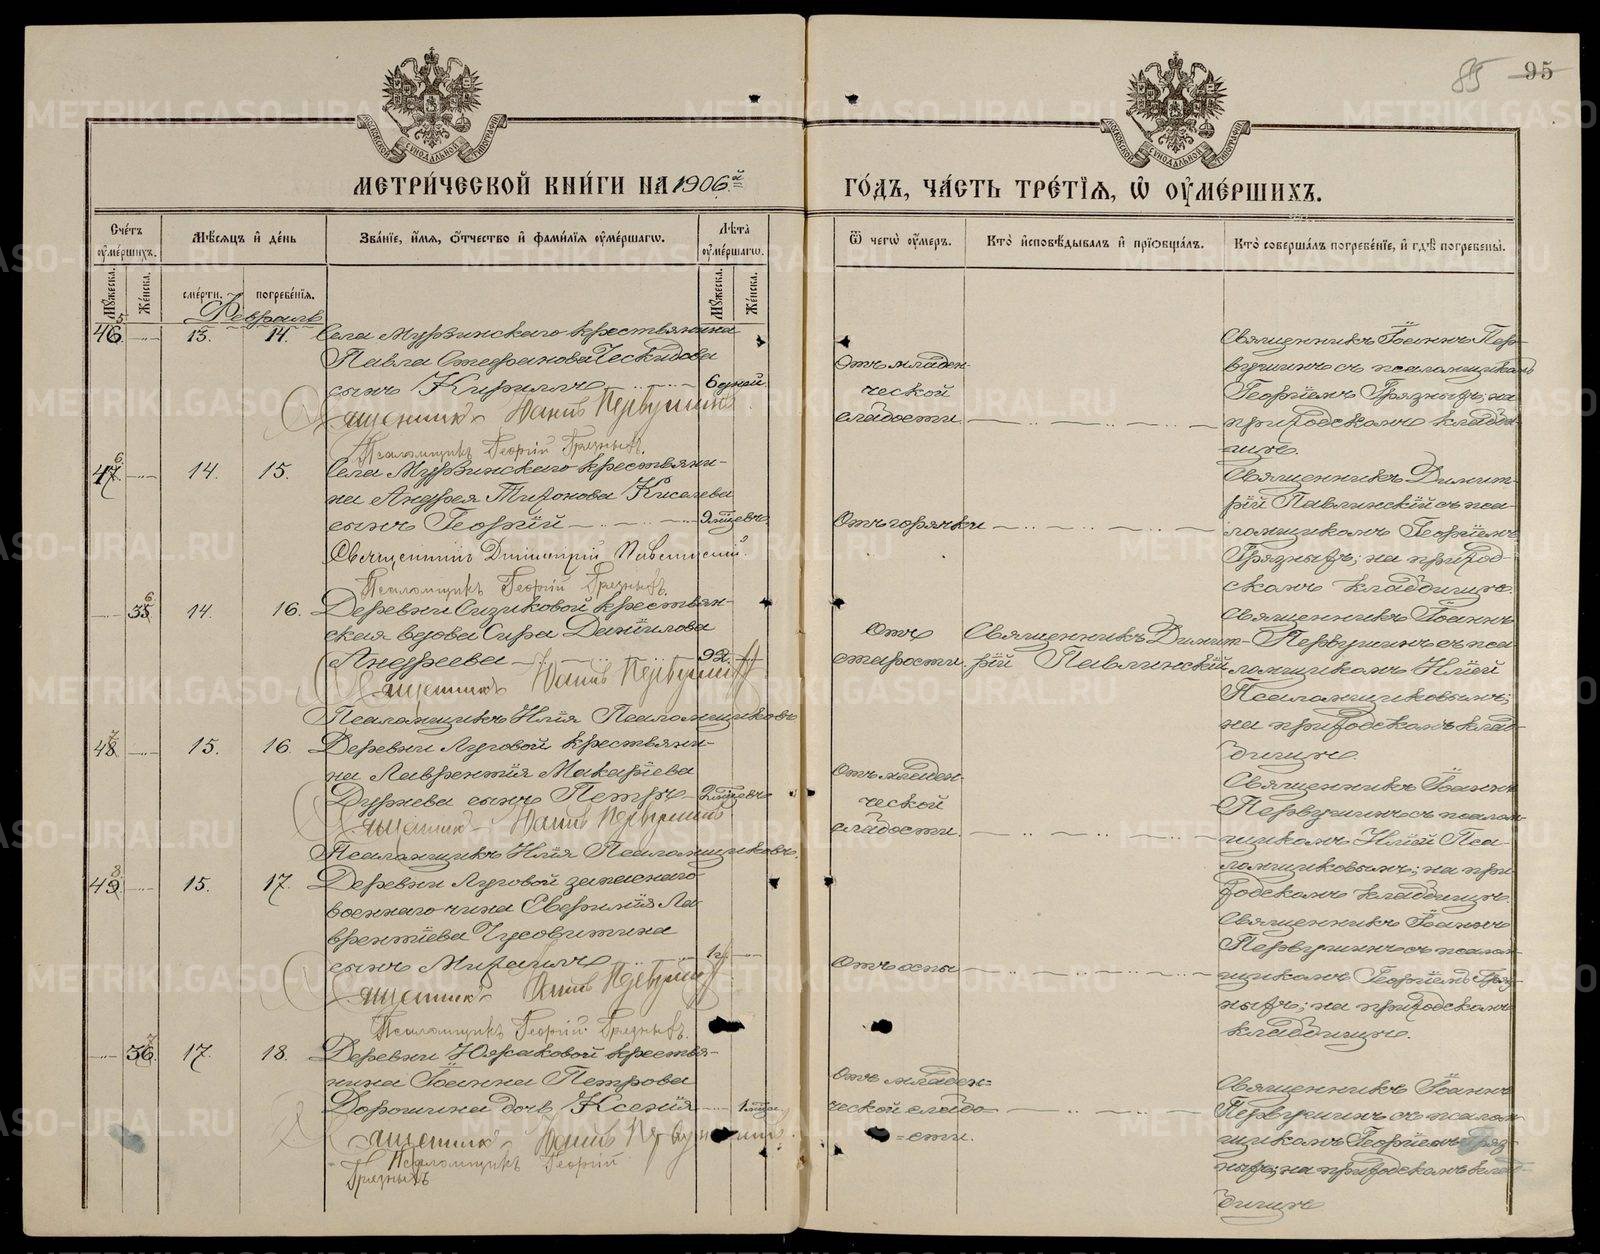 85 95
МЕТРИ́ЧЕСКОЙ КНИ́ГИ НА 1906й ГО́ДЪ, ЧА́СТЬ ТРЕ́ТІѦ, Ѡ҆ ОУ҆МЕ́РШИХЪ.
МОСКОВСКОЙ СѴНОДАЛЬНОЙ ТИПОГРАФІИ
МОСКОВСКОЙ СѴНОДАЛЬНОЙ ТИПОГРАФІИ
Сче́тъ оу҆ме́ршихъ.
Мѣ́сѧцъ и҆ де́нь
Зва́нїе, и҆́мѧ, ѻ҆́тчество и҆ фами́лїѧ оу҆ме́ршагѡ.
Лѣ́та оу҆ме́ршагѡ.
Ѿ чегѡ̀ оу҆́меръ.
Кто̀ и҆сповѣ́дывалъ и҆ прїѡбща́лъ.
Кто̀ соверша́лъ погребе́нїе, и҆ гдѣ̀ погребены̀.
Мꙋ́жеска.
Же́нска.
сме́рти.
погребе́нїѧ.
Мꙋ́жеска.
Же́нска.
Февраль
46. 5. 13. 14.
Села Мурзинскаго крестьянина
Павла Стефанова Ческидова
сынъ Кириллъ 6 дней
Священникъ Іоаннъ Первушинъ
Псаломщикъ Георгій Грязныхъ.
Отъ младен-
ческой
слабости.
Священникъ Іоаннъ Пер-
вушинъ съ псаломщикомъ
Георгіемъ Грязныхъ; на
приходскомъ кладби-
щѣ.
47. 6. 14. 15.
Села Мурзинскаго крестьяни-
на Андрея Тихонова Киселева
сынъ Георгій
Священникъ Димитрій Павлинскій.
Псаломщикъ Георгій Грязныхъ.
Отъ горячки
Священникъ Димит-
рій Павлинскій съ пса-
ломщикомъ Георгіемъ
Грязныхъ; на приход-
скомъ кладбищѣ.
35. 6. 14. 16.
Деревни Сизиковой крестьян-
ская вдова Сира Даніилова
Андреева 92.
Священникъ Іоаннъ Первушинъ
Псаломщикъ Илія Псаломщиковъ
Отъ
старости.
Священникъ Димит-
рій Павлинскій
Священникъ Іоаннъ
Первушинъ съ пса-
ломщикомъ Иліей
Псаломщиковымъ;
на приходскомъ клад-
бищѣ.
48. 7. 15. 16.
Деревни Луговой крестьяни-
на Лаврентія Макаріева
Дурнева сынъ Петръ
Священникъ Іоаннъ Первушинъ
Псаломщикъ Илія Псаломщиковъ.
Отъ младен-
ческой
слабости.
Священникъ Іоаннъ
Первушинъ съ псалом-
щикомъ Иліей Пса-
ломщиковымъ; на при-
ходскомъ кладбищѣ.
49. 8. 15. 17.
Деревни Луговой запаснаго
военнаго чина Ла-
врентіева Чусовитина
сынъ Михаилъ 1 г.
Священникъ Іоаннъ Первушинъ
Псаломщикъ Георгій Грязныхъ.
Отъ оспы
Священникъ Іоаннъ
Первушинъ съ псалом-
щикомъ Георгіемъ Гряз-
ныхъ; на приходскомъ
кладбищѣ.
36. 7. 17. 18.
Деревни Южаковой крестья-
нина Іоанна Петрова
Дорошина дочь Ксенія
Священникъ Іоаннъ Первушинъ.
Псаломщикъ Георгій
Грязныхъ
Отъ младен-
ческой слабо-
сти.
Священникъ Іоаннъ
Первушинъ съ псалом-
щикомъ Георгіемъ Гряз-
ныхъ; на приходскомъ клад-
бищѣ
METRIKI.GASO-URAL.RU